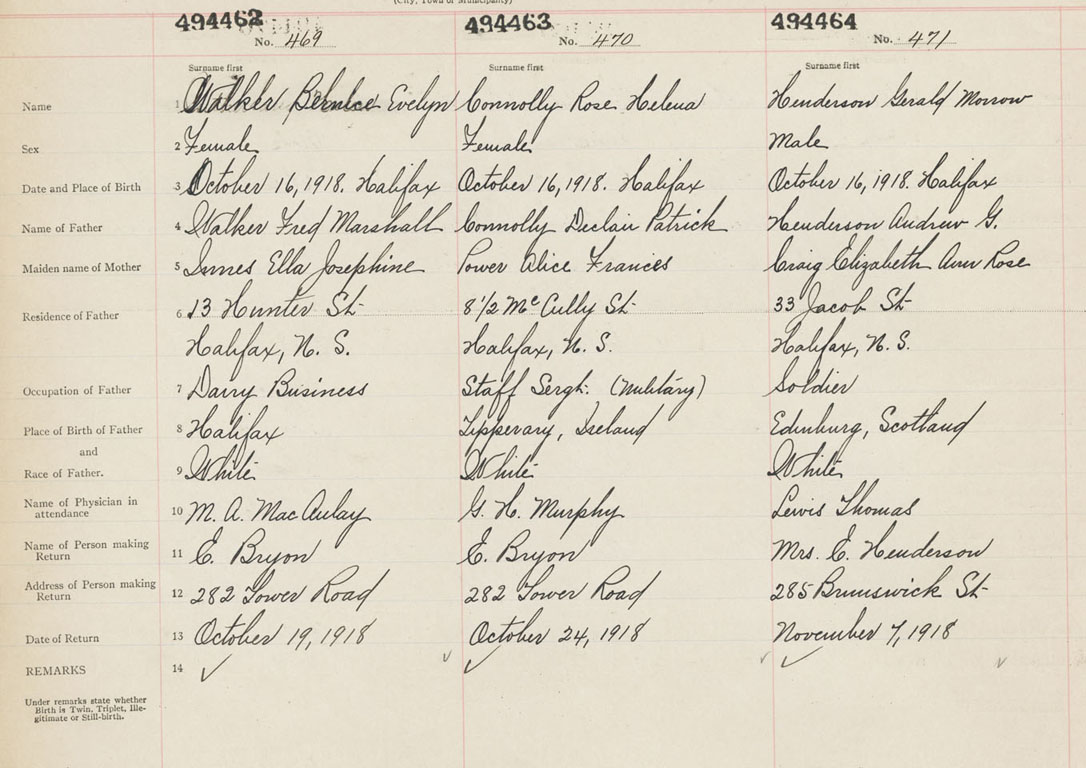 (City, Town or Municipality)
494462 494463 494464
No. 469 No. 470 No. 471
Surname first Surname first Surname first
Name 1 Walker Bernice Evelyn Connolly Rose Helena Henderson Gerald Morrow
Sex 2 Female Female Male
Date and Place of Birth 3 October 16, 1918. Halifax October 16, 1918. Halifax October 16, 1918. Halifax
Name of Father 4 Walker Fred Marshall Connolly Declair Patrick Henderson Andrew G.
Maiden name of Mother 5 Innes Ella Josephine Power Alice Frances Craig Elizabeth Ann Rose
Residence of Father 6 13 Hunter St 8 1/2 McCully St 33 Jacob St
Halifax, N. S. Halifax, N. S. Halifax, N. S.
Occupation of Father 7 Dairy Business Staff Sergt. (Military) Soldier
Place of Birth of Father 8 Halifax Tipperary, Ireland Edinburg, Scotland
and
Race of Father. 9 White White White
Name of Physician in
attendance 10 M. A. MacAulay G. H. Murphy Lewis Thomas
Name of Person making
Return 11 E. Bryon E. Bryon Mrs. E. Henderson
Address of Person making
Return 12 282 Tower Road 282 Tower Road 285 Brunswick St
Date of Return 13 October 19, 1918 October 24, 1918 November 7, 1918
REMARKS 14 ✓ ✓ ✓
Under remarks state whether
Birth is Twin, Triplet, Ille-
gitimate or Still-birth.